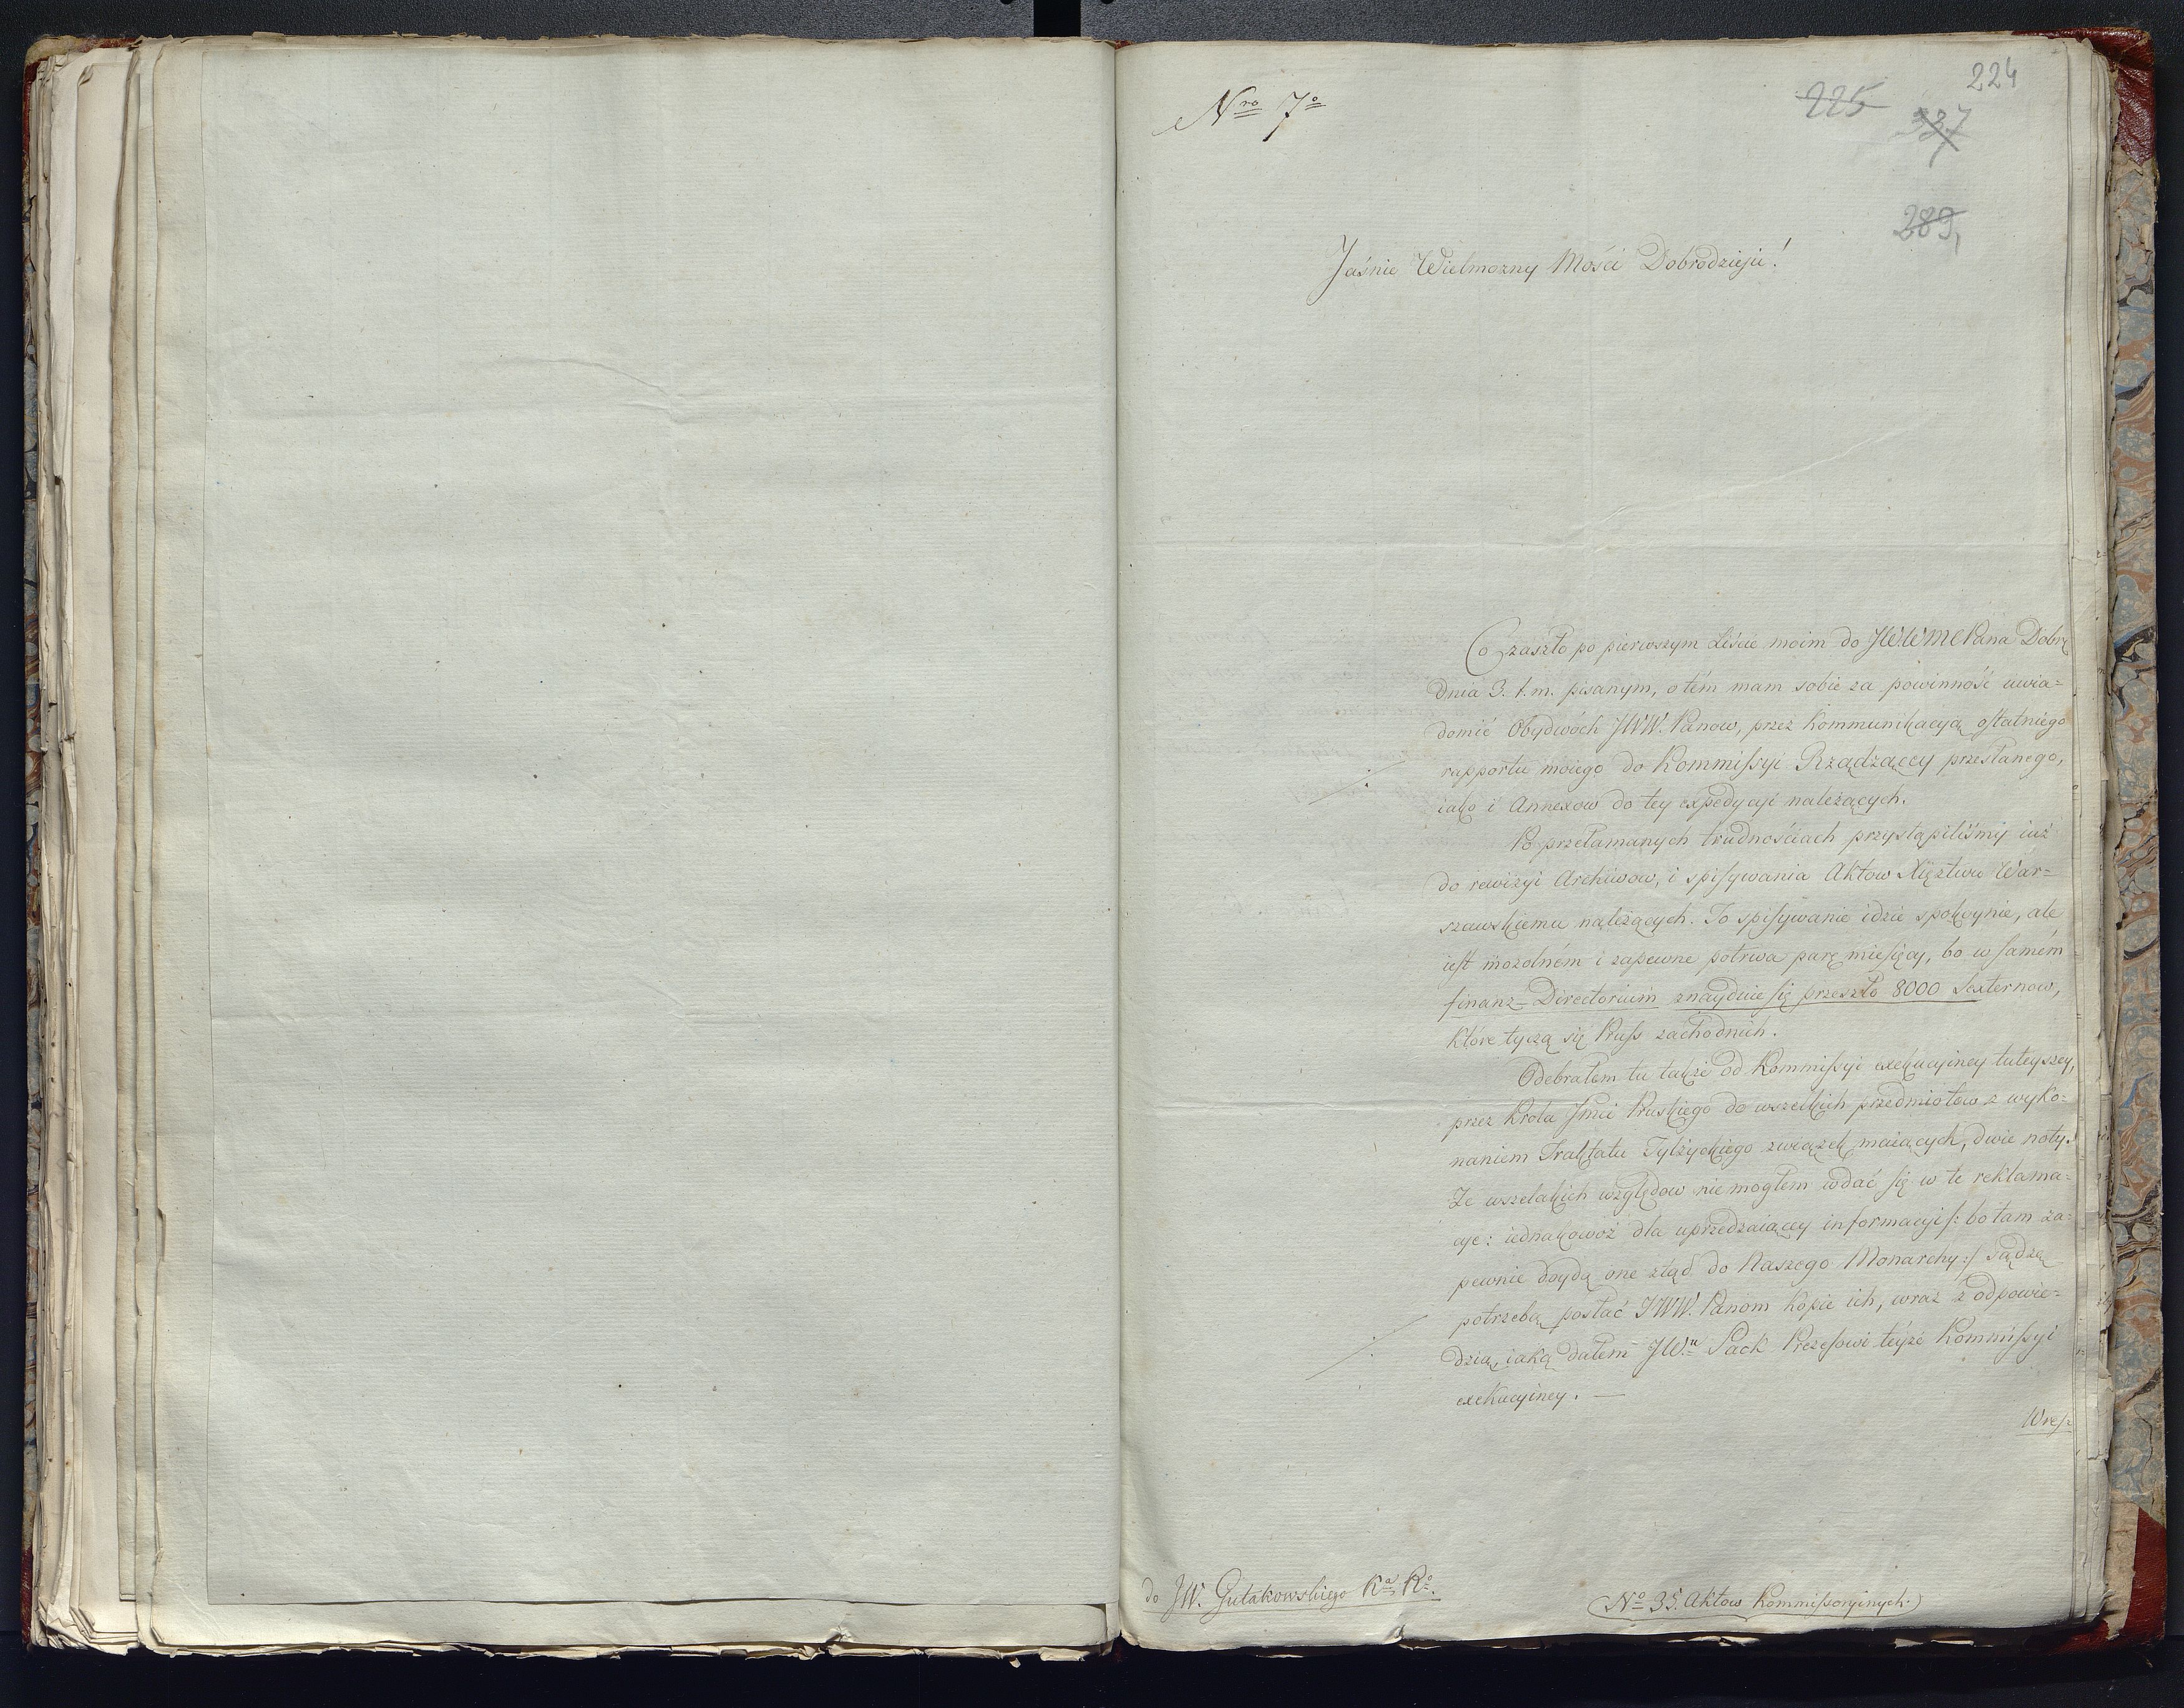 Nro 7o
224
225
337
289,
Jaśnie Wielmożny Mości Dobrodzieju!
Co zaszło po pierwszym Liście moim do JWWMC Pana Dobr.
dnia 3. t. m. pisanym, o tém mam sobie za powinność uwia=
domić Obydwóch JWW. Panow, przez kommunikacyą ostatniego
rapportu moiego do Kommissyi Rządzącey przesłanego,
iako i Annexow do tey expedycyi należących.
Po przełamanych trudnościach przystąpiliśmy iuż
do rewizyi Archiwow, i spisywania Aktow Xięztwu War=
szawskiemu należących. To spisywanie idzie spokoynie, ale
iest mozolném i zapewne potrwa parę miesięcy, bo w samém
finanz-Directorium znayduie się przeszło 8000 Sexternow,
które tyczą się Pruss zachodnich.
Odebrałem tu także od Kommissyi exekucyiney tuteyszey,
przez Krola Jmci Pruskiego do wszelkich przedmiotow z wyko=
naniem Traktatu Tylżyckiego związek maiących, dwie noty.
Ze wszelakich względow nie mogłem wdać się w te reklama=
cye: iednakowoż dla uprzedzaiącey informacyi /: bo tam za=
pewnie doydą one ztąd do Naszego Monarchy :/ sądzę
potrzebą posłać JWW. Panom kopie ich, wraz z odpowie=
dzią, iaką dałem JWu Sack Prezesowi teyże Kommissyi
exekucyiney. —
Wres=
do JW. Gutakowskiego Ka Ro.
(No 35. Aktow Kommissoryinych.)